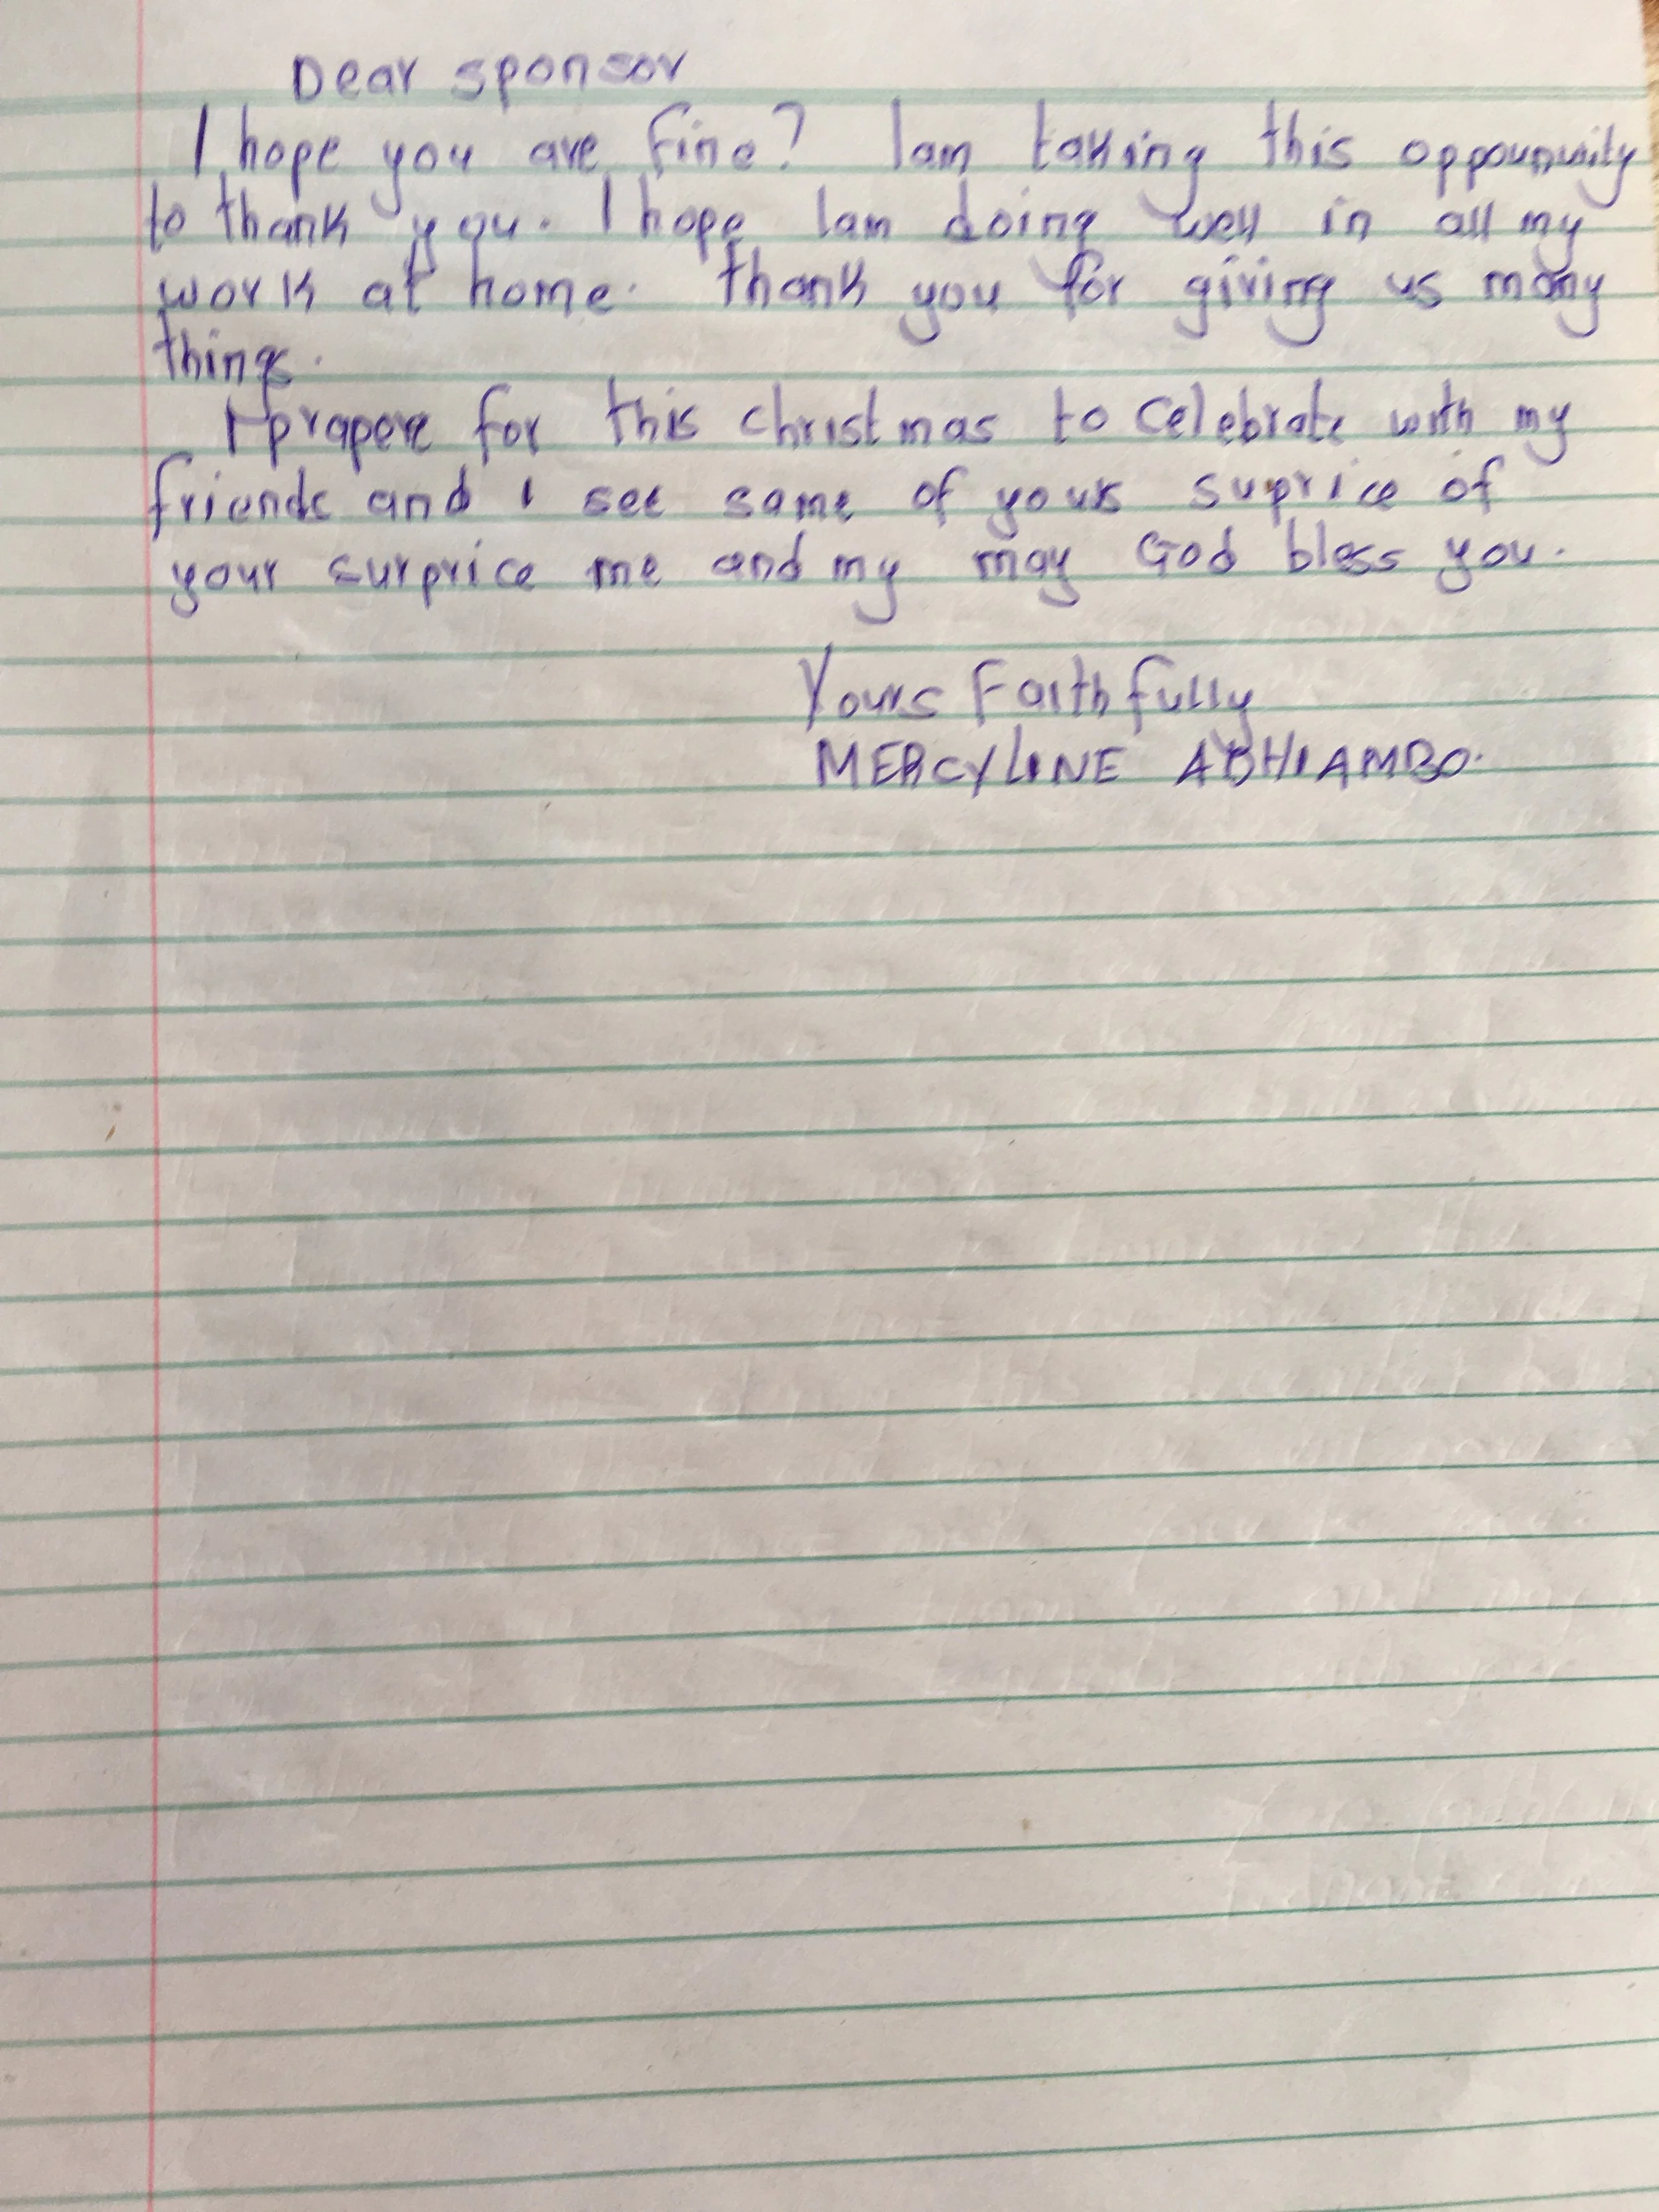 Dear sponsor
I hope you are fine? Iam taking this
to thank you. I hope Iam doing well in all my
work at home. thank you for giving us many
things.
I prapere for this christmas to celebrate with my
friends and I see some of yours suprice of
your surprice me and my may God bless you.
Yours Faithfully
MERCYLINE ADHIAMBO.